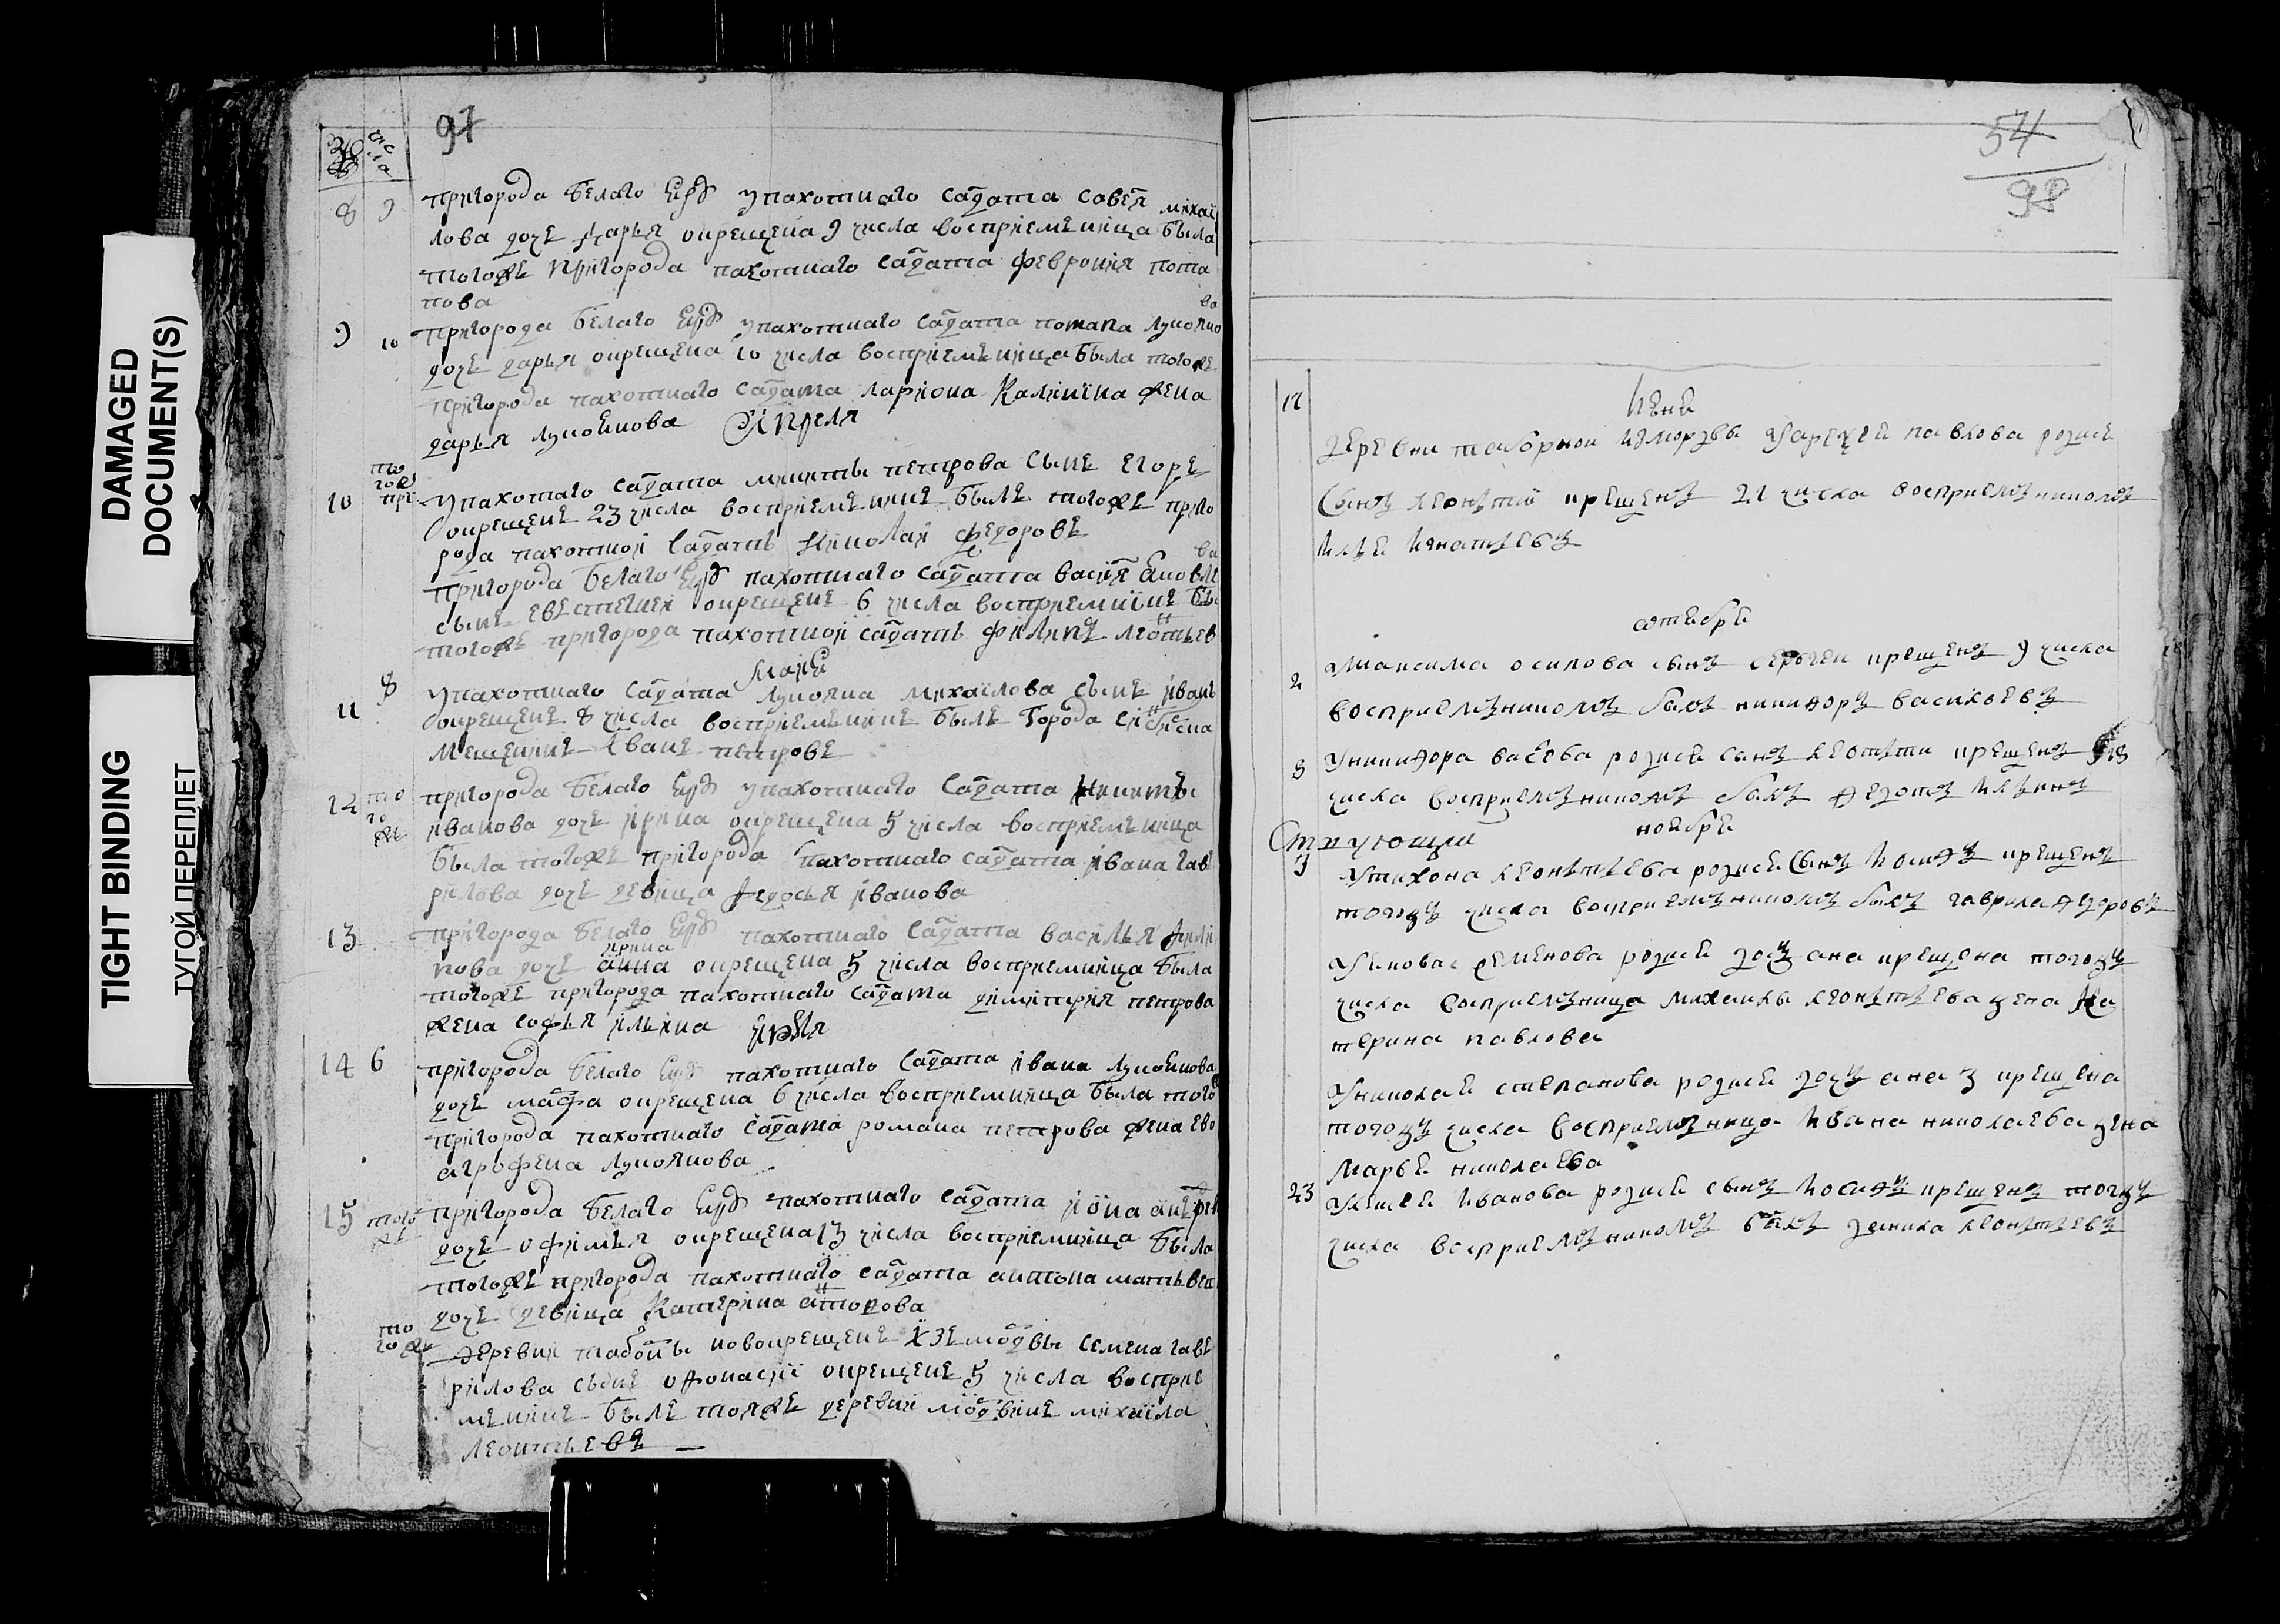 DAMAGED
DOCUMENT(S)
TIGHT BINDING
ТУГОЙ ПЕРЕПЛЕТ
97
числа
8 9 пригорода белаго яру упахотнаго салдата савел михаи
лова дочь дарья окрещена 9 числа восприемъница была
тогоже пригорода пахотнаго салдата феврония пота
пова
9 10 пригорода белаго яру упахотнаго салдата потапа лукояно
ва
дочь дарья окрещена 10 числа восприемъница была тогоже
пригорода пахотнаго салдата лариона калинина жена
дарья лукоянова априля
10 того же при упахотнаго салдата микиты петрова сынъ егоръ
окрещенъ 23 числа восприемъникъ былъ тогоже приго
рода пахотной салдатъ николай федоровъ
пригорода белаго яру пахотнаго салдата васил яковле
ва
сынъ окрещенъ 6 числа восприемникъ бы
тогоже пригорода пахотной салдатъ филипъ леонтьев
майя
11 8 упахотнаго салдата лукояна михаилова сынъ иванъ
окрещенъ 8 числа восприемъникъ былъ города синбирска
мещенинъ иванъ петровъ
12 того же пригорода белаго яру упахотнаго салдата никиты
иванова дочь ирина окрещена 5 числа восприемъница
была тогоже пригорода пахотнаго салдата ивана гав
рилова дочь девица федосья иванова
13 пригорода белаго яру пахотнаго салдата василья фили
пова дочь анна ирина окрещена 5 числа восприемница была
тогоже пригорода пахотнаго салдата димитрия петрова
жена софья ильина июня
14 6 пригорода белаго яру пахотнаго салдата ивана лукоянова
дочь марфа окрещена 6 числа восприемница была того
пригорода пахотнаго салдата романа петрова жена ево
агрофена лукоянова
15 того же пригорода белаго яру пахотнаго салдата
дочь офимья окрещена 13 числа восприемница была
тогоже пригорода пахотнаго салдата антона матвеев
дочь девица катерина антонова
того же деревни таборны новокрещенъ изъ мордвы семена гав
рилова сынъ офонасий окрещенъ 5 числа восприе
мникъ былъ тояже деревни мордвинъ михаила
леонтьевъ
54
98
июня
деревни таборной измордвы павлова родися
сынъ леонтий крещенъ 21 числа восприемникомъ
илья игнатьевъ
октября
2 умаксима осипова сынъ сергеи крещенъ 9 числа
восприемникомъ былъ никифоръ васильевъ
3 уникифора родися сынъ леонти крещенъ
числа восприемникомъ былъ федотъ ильинъ
ноября
утихона леонтьева родися сынъ иосифъ крещенъ
тогожъ числа восприемникомъ былъ гаврила федоровъ
семенова родися дочъ ана крещена тогожъ
числа восприемница михаилы леонтьева жена ка
терина павлова
униколая степанова родися дочъ ана крещена
тогожъ числа восприемница ивана николаева жена
марья николаева
23 иванова родися сынъ иосифъ крещенъ тогожъ
числа восприемникомъ былъ данила леонтьевъ